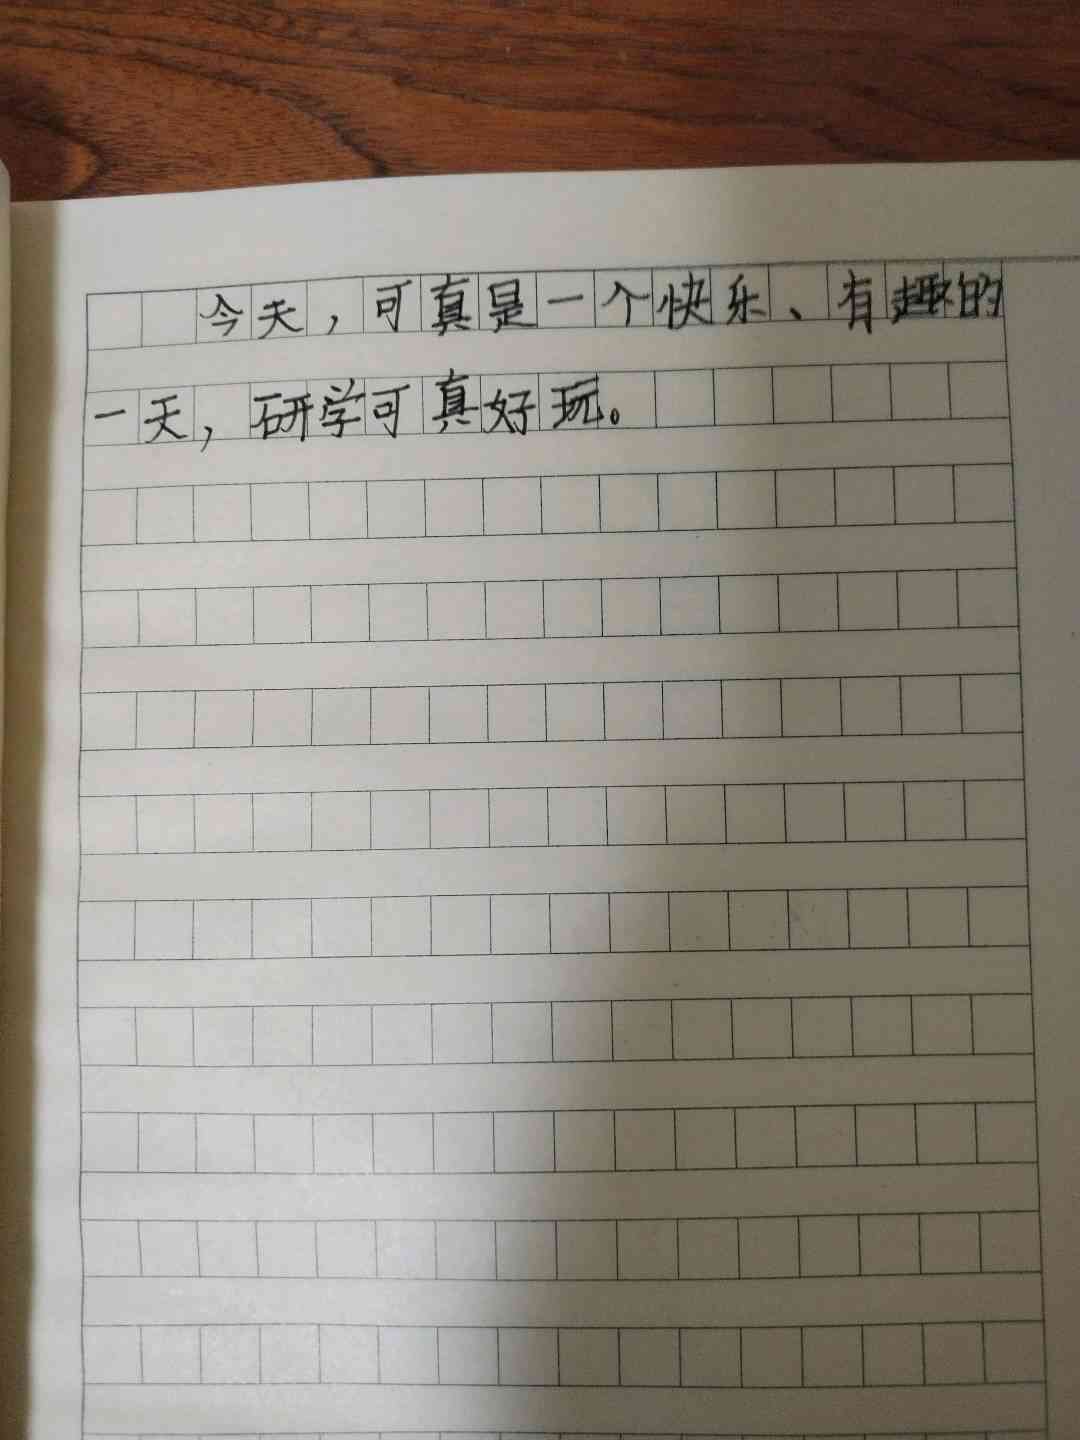 今天，可真是一个快乐、有趣的
一天，研学可真好玩。